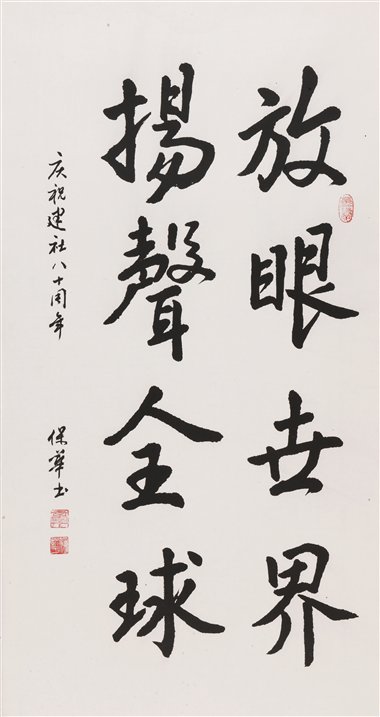 放眼世界
揚聲全球
庆祝建社八十周年
保華书